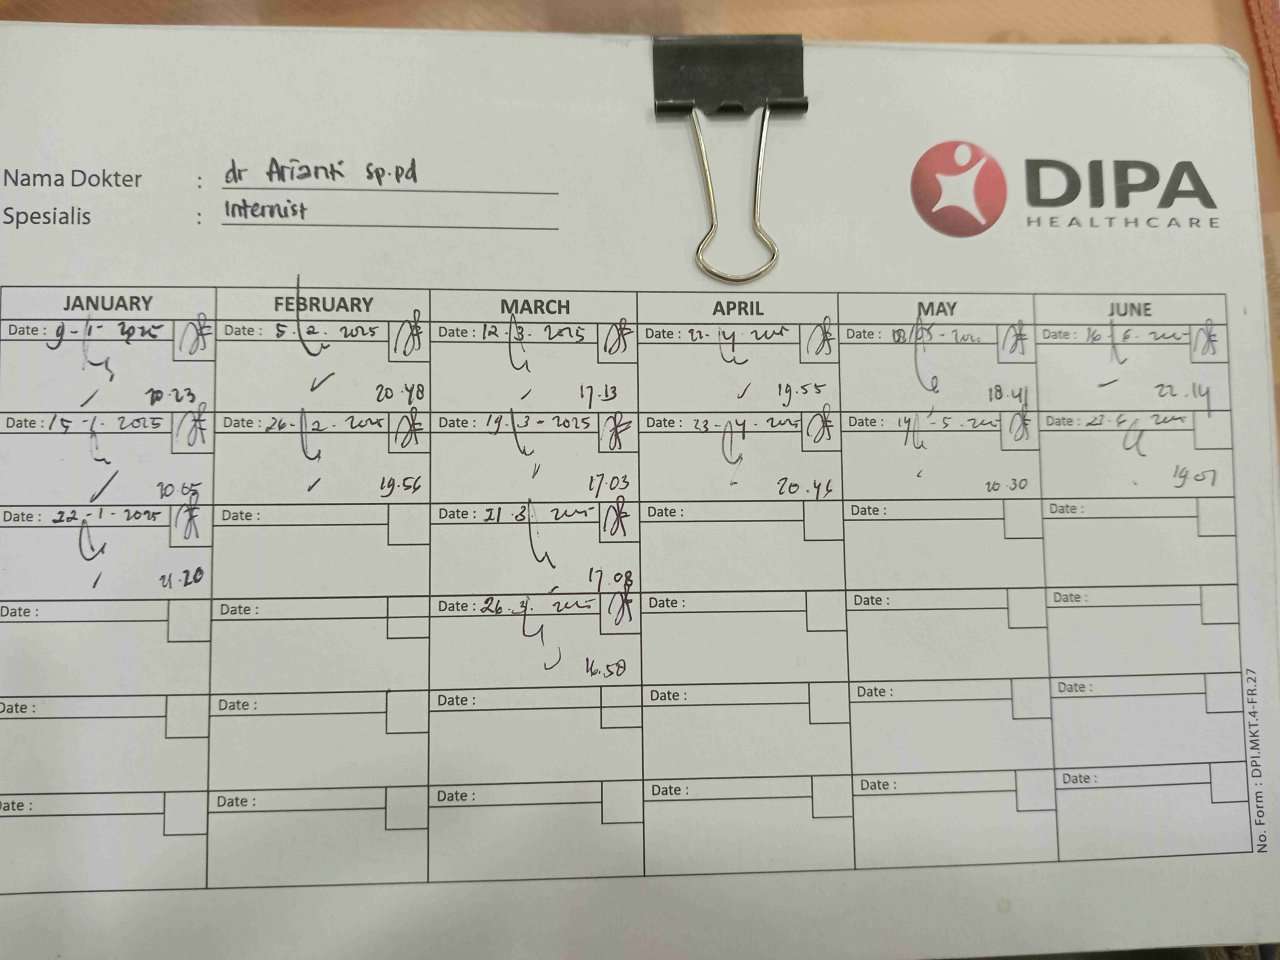 Nama Dokter : dr Arianti sp.pd
Spesialis : Internist
DIPA
HEALTHCARE
JANUARY FEBRUARY MARCH APRIL MAY JUNE
Date : 9-1-2025 Date : 5.2.2025 Date : 12.3.2025 Date : 22-4-2025 Date : Date : 16.6.2025
20.23 20.48 17.13 19.55 18.41 22.14
Date : 15-1-2025 Date : 26-2-2025 Date : 19-3-2025 Date : 23-4-2025 Date : 14-5-2025 Date : 23.6.2025
20.05 19.56 17.03 20.46 20.30 19.07
Date : 22-1-2025 Date : Date : 21.3.2025 Date : Date : Date :
21.20 17.08
Date : Date : Date : 26.3.2025 Date : Date : Date :
16.50
Date : Date : Date : Date : Date : Date :
Date : Date : Date : Date : Date : Date :
No. Form : DPI.MKT.4-FR.27